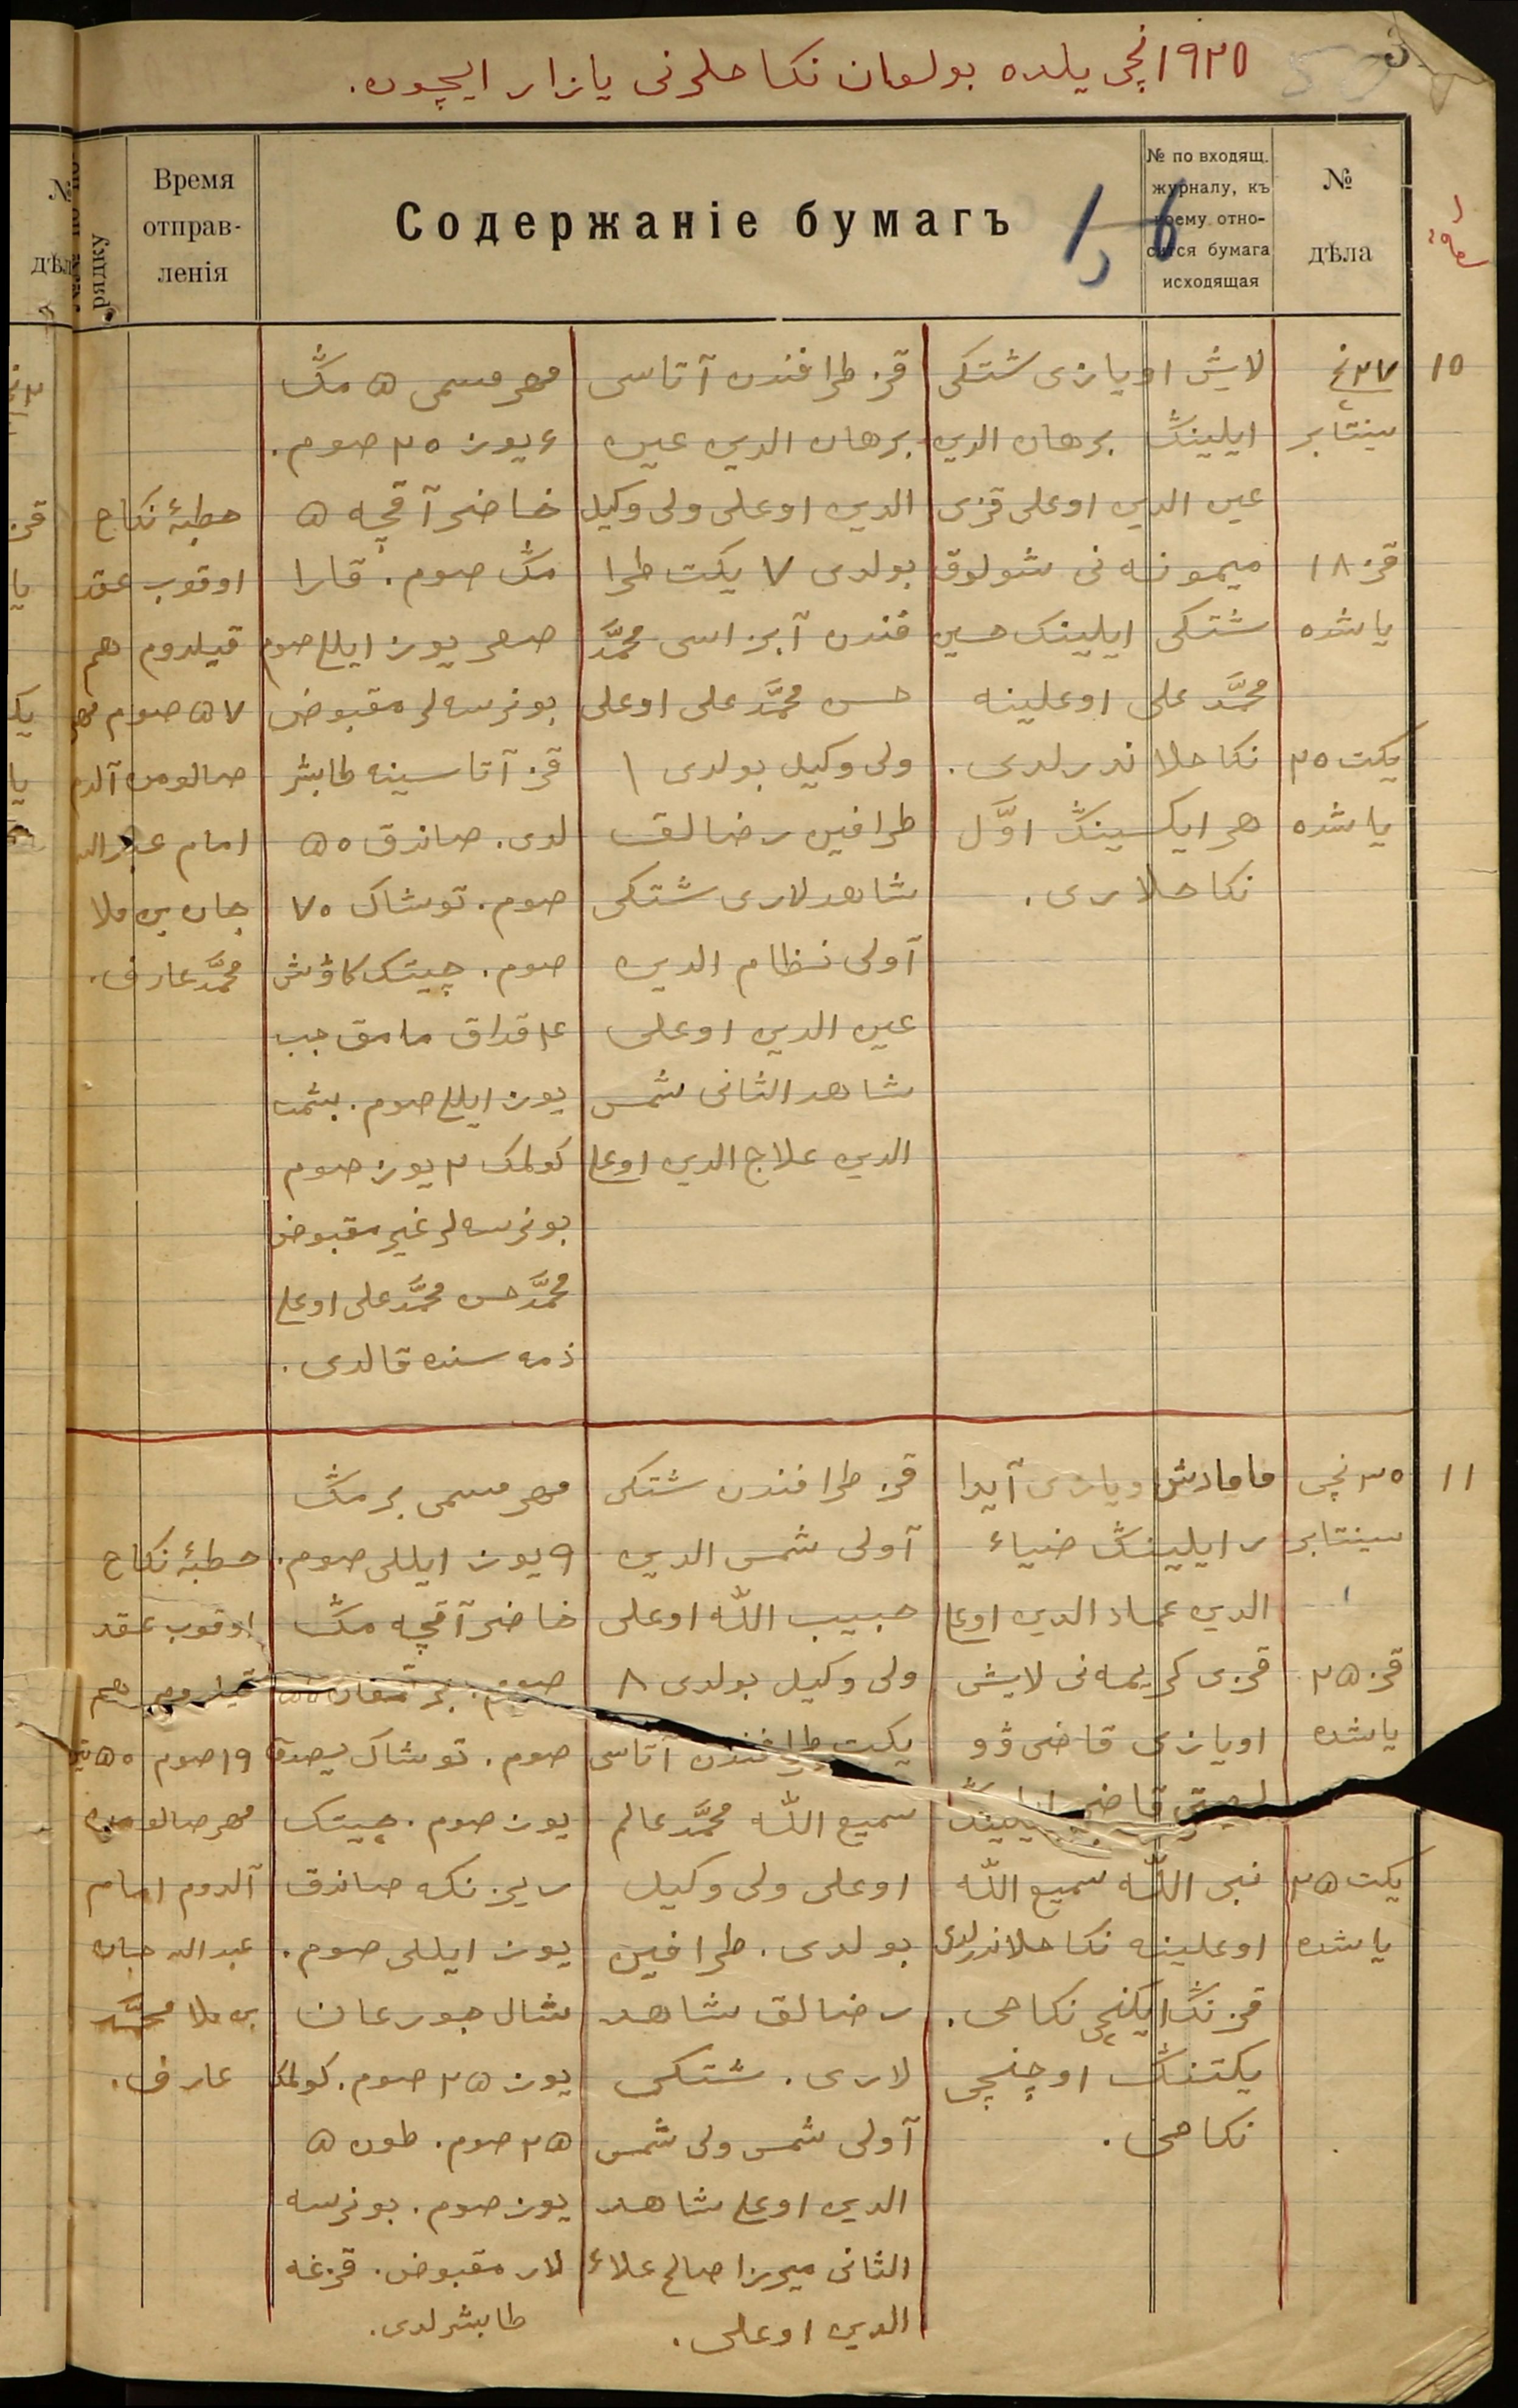 ۱۹۲۵ نچی یلده بولعان نکاحلرنی یازار ایچون.
№ дѣла
№ по входящ. журналу, къ коему отно- сится бумага исходящая
Содержаніе бумагъ
Время отправ- ленія
рядку
№ дѣл
۱۵
۲۷ نچی
سینتابر
قز ۱۸
یاشده
یکت ۲۵
یاشده
لایش اویازی شتکی
ایلینڭ برهان الدین
عین الدین اوعلی قزی
میمونه نی شولوق
شتکی ایلینک حسن
محمَّد علی اوعلینه
نکاحلاندرلدی.
هر ایکسینڭ اوَّل
نکاحلاری.
قز طرافندن آتاسی
برهان الدین عین
الدین اوعلی ولی وکیل
بولدی ۷ یکت طرا
فندن آبزاسی محمَّد
حسن محمَّد علی اوعلی
ولی وکیل بولدی ۱
طرافین رضالق
شاهدلاری شتکی
آولی نظام الدین
عین الدین اوعلی
شاهد الثانی شمس
الدین علاج الدین اوعلی
مهر مسمی ۵ مڭ
۶ یوز ۲۵ صوم.
خاضر آقچه ۵
مڭ صوم. قارا
صعر یوز ایللی صوم
بو نرسه لر مقبوض
قز آتاسینه طابشر
لدی. صاندق ۵۰
صوم. توشاک ۷۵
صوم. چیتک کاوش
یوز ایللی صوم. بشمت
کولمک ۲ یوز صوم
بو نرسه لر غیر مقبوض
محمَّد حسن محمَّد علی اوعلی
ذمه سنده قالدی.
حطبهٔ نکاح
اوقوب عقد
قیلدوم هم
۵۷ صوم مهر
صالومن آلدم
امام عبدالله
جان بن ملا
محمَّد عارف.
۱۱
۳۰ نچی
سینتابر
قز ۲۵
یاشده
یکت ۲۵
یاشده
مامادش اویازی آیدا
ر ایلینڭ ضیاء
الدین عماد الدین اوعلی
قزی کریمه نی لایش
اویازی قاضی ۋو
نبی الله سمیع الله
اوعلینه نکاحلاندرلدی
قزنڭ ایکنچی نکاحی.
یکتنڭ اوچنچی
نکاحی.
قز طرافندن شتکی
آولی شمس الدین
حبیب الله اوعلی
ولی وکیل بولدی ۸
یکت طرافندن آتاسی
سمیع الله محمَّد عالم
اوعلی ولی وکیل
بولدی. طرافین
رضالق شاهد
لاری. شتکی
آولی شمس ولی شمس
الدین اوعلی شاهد
الثانی میرزا صالح علاء
الدین اوعلی.
مهر مسمی بر مڭ
۹ یوز ایللی صوم.
خاضر آقچه مڭ
صوم.
صوم. توشاک یصدق
یوز صوم. چیتک
ریزنکه صاندق
یوز ایللی صوم.
شال جورعان
یوز ۲۵ صوم. کولمک
۲۵ صوم. طون ۵
یوز صوم. بو نرسه
لار مقبوض. قزغه
طابشرلدی.
حطبهٔ نکاح
اوقوب عقد
قیلدوم هم
۱۹ صوم ۵۰ تین
مهر صالومن
آلدوم امام
عبدالله جان
بن ملا محمَّد
عارف.